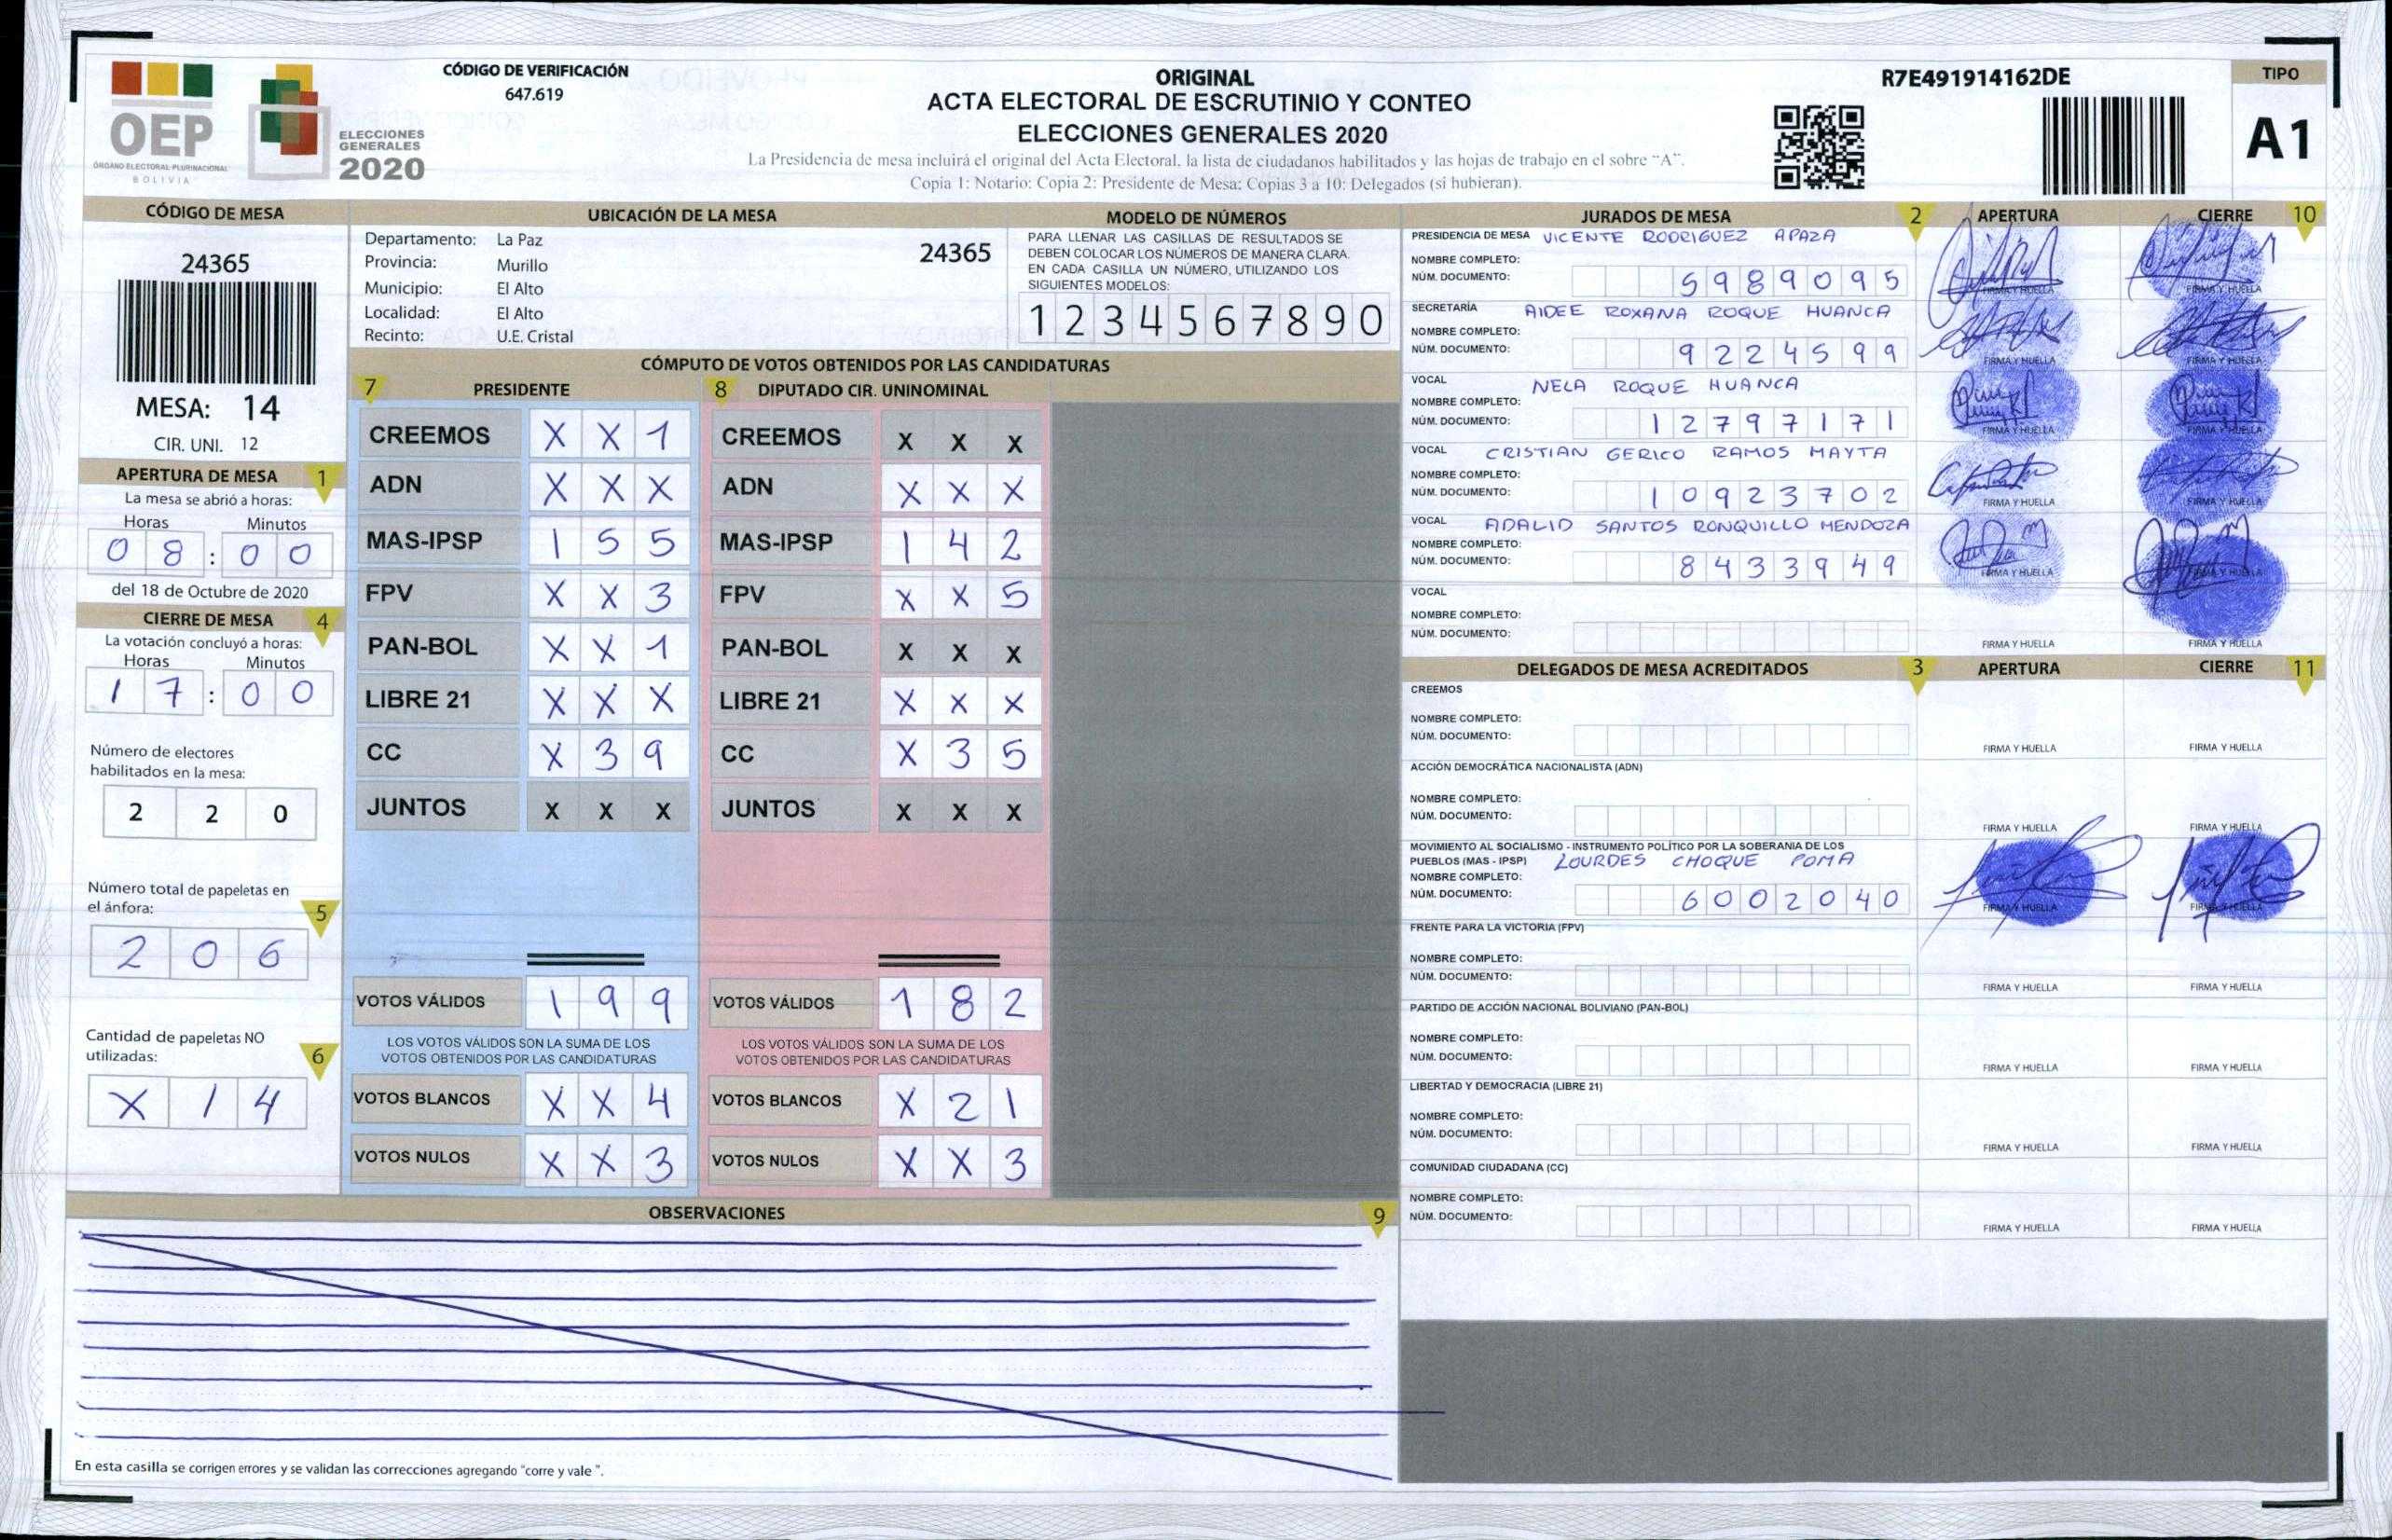 OEP
ÓRGANO ELECTORAL PLURINACIONAL
BOLIVIA
ELECCIONES
GENERALES
2020
CÓDIGO DE VERIFICACIÓN
647.619
ORIGINAL
ACTA ELECTORAL DE ESCRUTINIO Y CONTEO
ELECCIONES GENERALES 2020
La Presidencia de mesa incluirá el original del Acta Electoral, la lista de ciudadanos habilitados y las hojas de trabajo en el sobre "A".
Copia 1: Notario; Copia 2: Presidente de Mesa; Copias 3 a 10: Delegados (si hubieran).
R7E491914162DE
TIPO
A1
CÓDIGO DE MESA
24365
MESA: 14
CIR. UNI. 12
APERTURA DE MESA 1
La mesa se abrió a horas:
Horas Minutos
0 8 : 0 0
del 18 de Octubre de 2020
CIERRE DE MESA 4
La votación concluyó a horas:
Horas Minutos
1 7 : 0 0
Número de electores
habilitados en la mesa:
2 2 0
Número total de papeletas en
el ánfora:
5
2 0 6
Cantidad de papeletas NO
utilizadas:
6
X 1 4
UBICACIÓN DE LA MESA
Departamento: La Paz
Provincia: Murillo
Municipio: El Alto
Localidad: El Alto
Recinto: U.E. Cristal
24365
MODELO DE NÚMEROS
PARA LLENAR LAS CASILLAS DE RESULTADOS SE
DEBEN COLOCAR LOS NÚMEROS DE MANERA CLARA.
EN CADA CASILLA UN NÚMERO, UTILIZANDO LOS
SIGUIENTES MODELOS:
1 2 3 4 5 6 7 8 9 0
CÓMPUTO DE VOTOS OBTENIDOS POR LAS CANDIDATURAS
7 PRESIDENTE
CREEMOS X X 1
ADN X X X
MAS-IPSP 1 5 5
FPV X X 3
PAN-BOL X X 1
LIBRE 21 X X X
CC X 3 9
JUNTOS X X X
VOTOS VÁLIDOS 1 9 9
LOS VOTOS VÁLIDOS SON LA SUMA DE LOS
VOTOS OBTENIDOS POR LAS CANDIDATURAS
VOTOS BLANCOS X X 4
VOTOS NULOS X X 3
8 DIPUTADO CIR. UNINOMINAL
CREEMOS X X X
ADN X X X
MAS-IPSP 1 4 2
FPV X X 5
PAN-BOL X X X
LIBRE 21 X X X
CC X 3 5
JUNTOS X X X
VOTOS VÁLIDOS 1 8 2
LOS VOTOS VÁLIDOS SON LA SUMA DE LOS
VOTOS OBTENIDOS POR LAS CANDIDATURAS
VOTOS BLANCOS X 2 1
VOTOS NULOS X X 3
OBSERVACIONES 9
En esta casilla se corrigen errores y se validan las correcciones agregando "corre y vale ".
JURADOS DE MESA 2 APERTURA CIERRE 10
PRESIDENCIA DE MESA VICENTE RODRIGUEZ APAZA
NOMBRE COMPLETO:
NÚM. DOCUMENTO: 5989095
FIRMA Y HUELLA FIRMA Y HUELLA
SECRETARÍA AIDEE ROXANA ROQUE HUANCA
NOMBRE COMPLETO:
NÚM. DOCUMENTO: 9224599
FIRMA Y HUELLA FIRMA Y HUELLA
VOCAL NELA ROQUE HUANCA
NOMBRE COMPLETO:
NÚM. DOCUMENTO: 12797171
FIRMA Y HUELLA FIRMA Y HUELLA
VOCAL CRISTIAN GERICO RAMOS MAYTA
NOMBRE COMPLETO:
NÚM. DOCUMENTO: 10923702
FIRMA Y HUELLA FIRMA Y HUELLA
VOCAL ADALID SANTOS RONQUILLO MENDOZA
NOMBRE COMPLETO:
NÚM. DOCUMENTO: 8433949
FIRMA Y HUELLA FIRMA Y HUELLA
VOCAL
NOMBRE COMPLETO:
NÚM. DOCUMENTO:
FIRMA Y HUELLA FIRMA Y HUELLA
DELEGADOS DE MESA ACREDITADOS 3 APERTURA CIERRE 11
CREEMOS
NOMBRE COMPLETO:
NÚM. DOCUMENTO:
FIRMA Y HUELLA FIRMA Y HUELLA
ACCIÓN DEMOCRÁTICA NACIONALISTA (ADN)
NOMBRE COMPLETO:
NÚM. DOCUMENTO:
FIRMA Y HUELLA FIRMA Y HUELLA
MOVIMIENTO AL SOCIALISMO - INSTRUMENTO POLÍTICO POR LA SOBERANIA DE LOS
PUEBLOS (MAS - IPSP) LOURDES CHOQUE POMA
NOMBRE COMPLETO:
NÚM. DOCUMENTO: 6002040
FIRMA Y HUELLA FIRMA Y HUELLA
FRENTE PARA LA VICTORIA (FPV)
NOMBRE COMPLETO:
NÚM. DOCUMENTO:
FIRMA Y HUELLA FIRMA Y HUELLA
PARTIDO DE ACCIÓN NACIONAL BOLIVIANO (PAN-BOL)
NOMBRE COMPLETO:
NÚM. DOCUMENTO:
FIRMA Y HUELLA FIRMA Y HUELLA
LIBERTAD Y DEMOCRACIA (LIBRE 21)
NOMBRE COMPLETO:
NÚM. DOCUMENTO:
FIRMA Y HUELLA FIRMA Y HUELLA
COMUNIDAD CIUDADANA (CC)
NOMBRE COMPLETO:
NÚM. DOCUMENTO:
FIRMA Y HUELLA FIRMA Y HUELLA